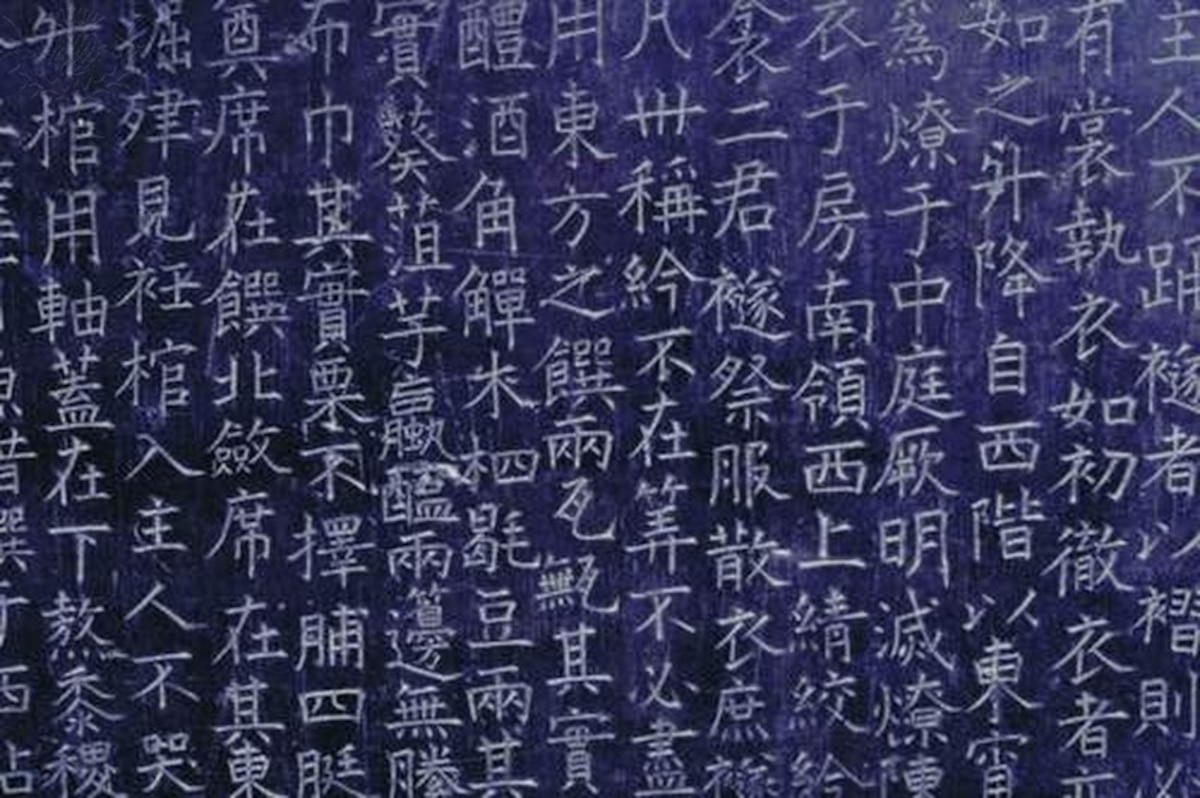 主人不踊襚者以褶則必
有裳執衣如初徹衣者亦
如之升降自西階以東宵
為燎于中庭厥明滅燎陳
衣于房南領西上綪絞紟
衾二君襚祭服散衣庶襚
凡卅稱紟不在筭不必盡
用東方之饌兩瓦甒其實
醴酒角觶木柶毼豆兩其
實葵菹芋蠃醢兩籩無縢
布巾其實栗不擇脯四脡
奠席在饌北斂席在其東
掘肂見衽棺入主人不哭
升棺用軸蓋在下熬黍稷